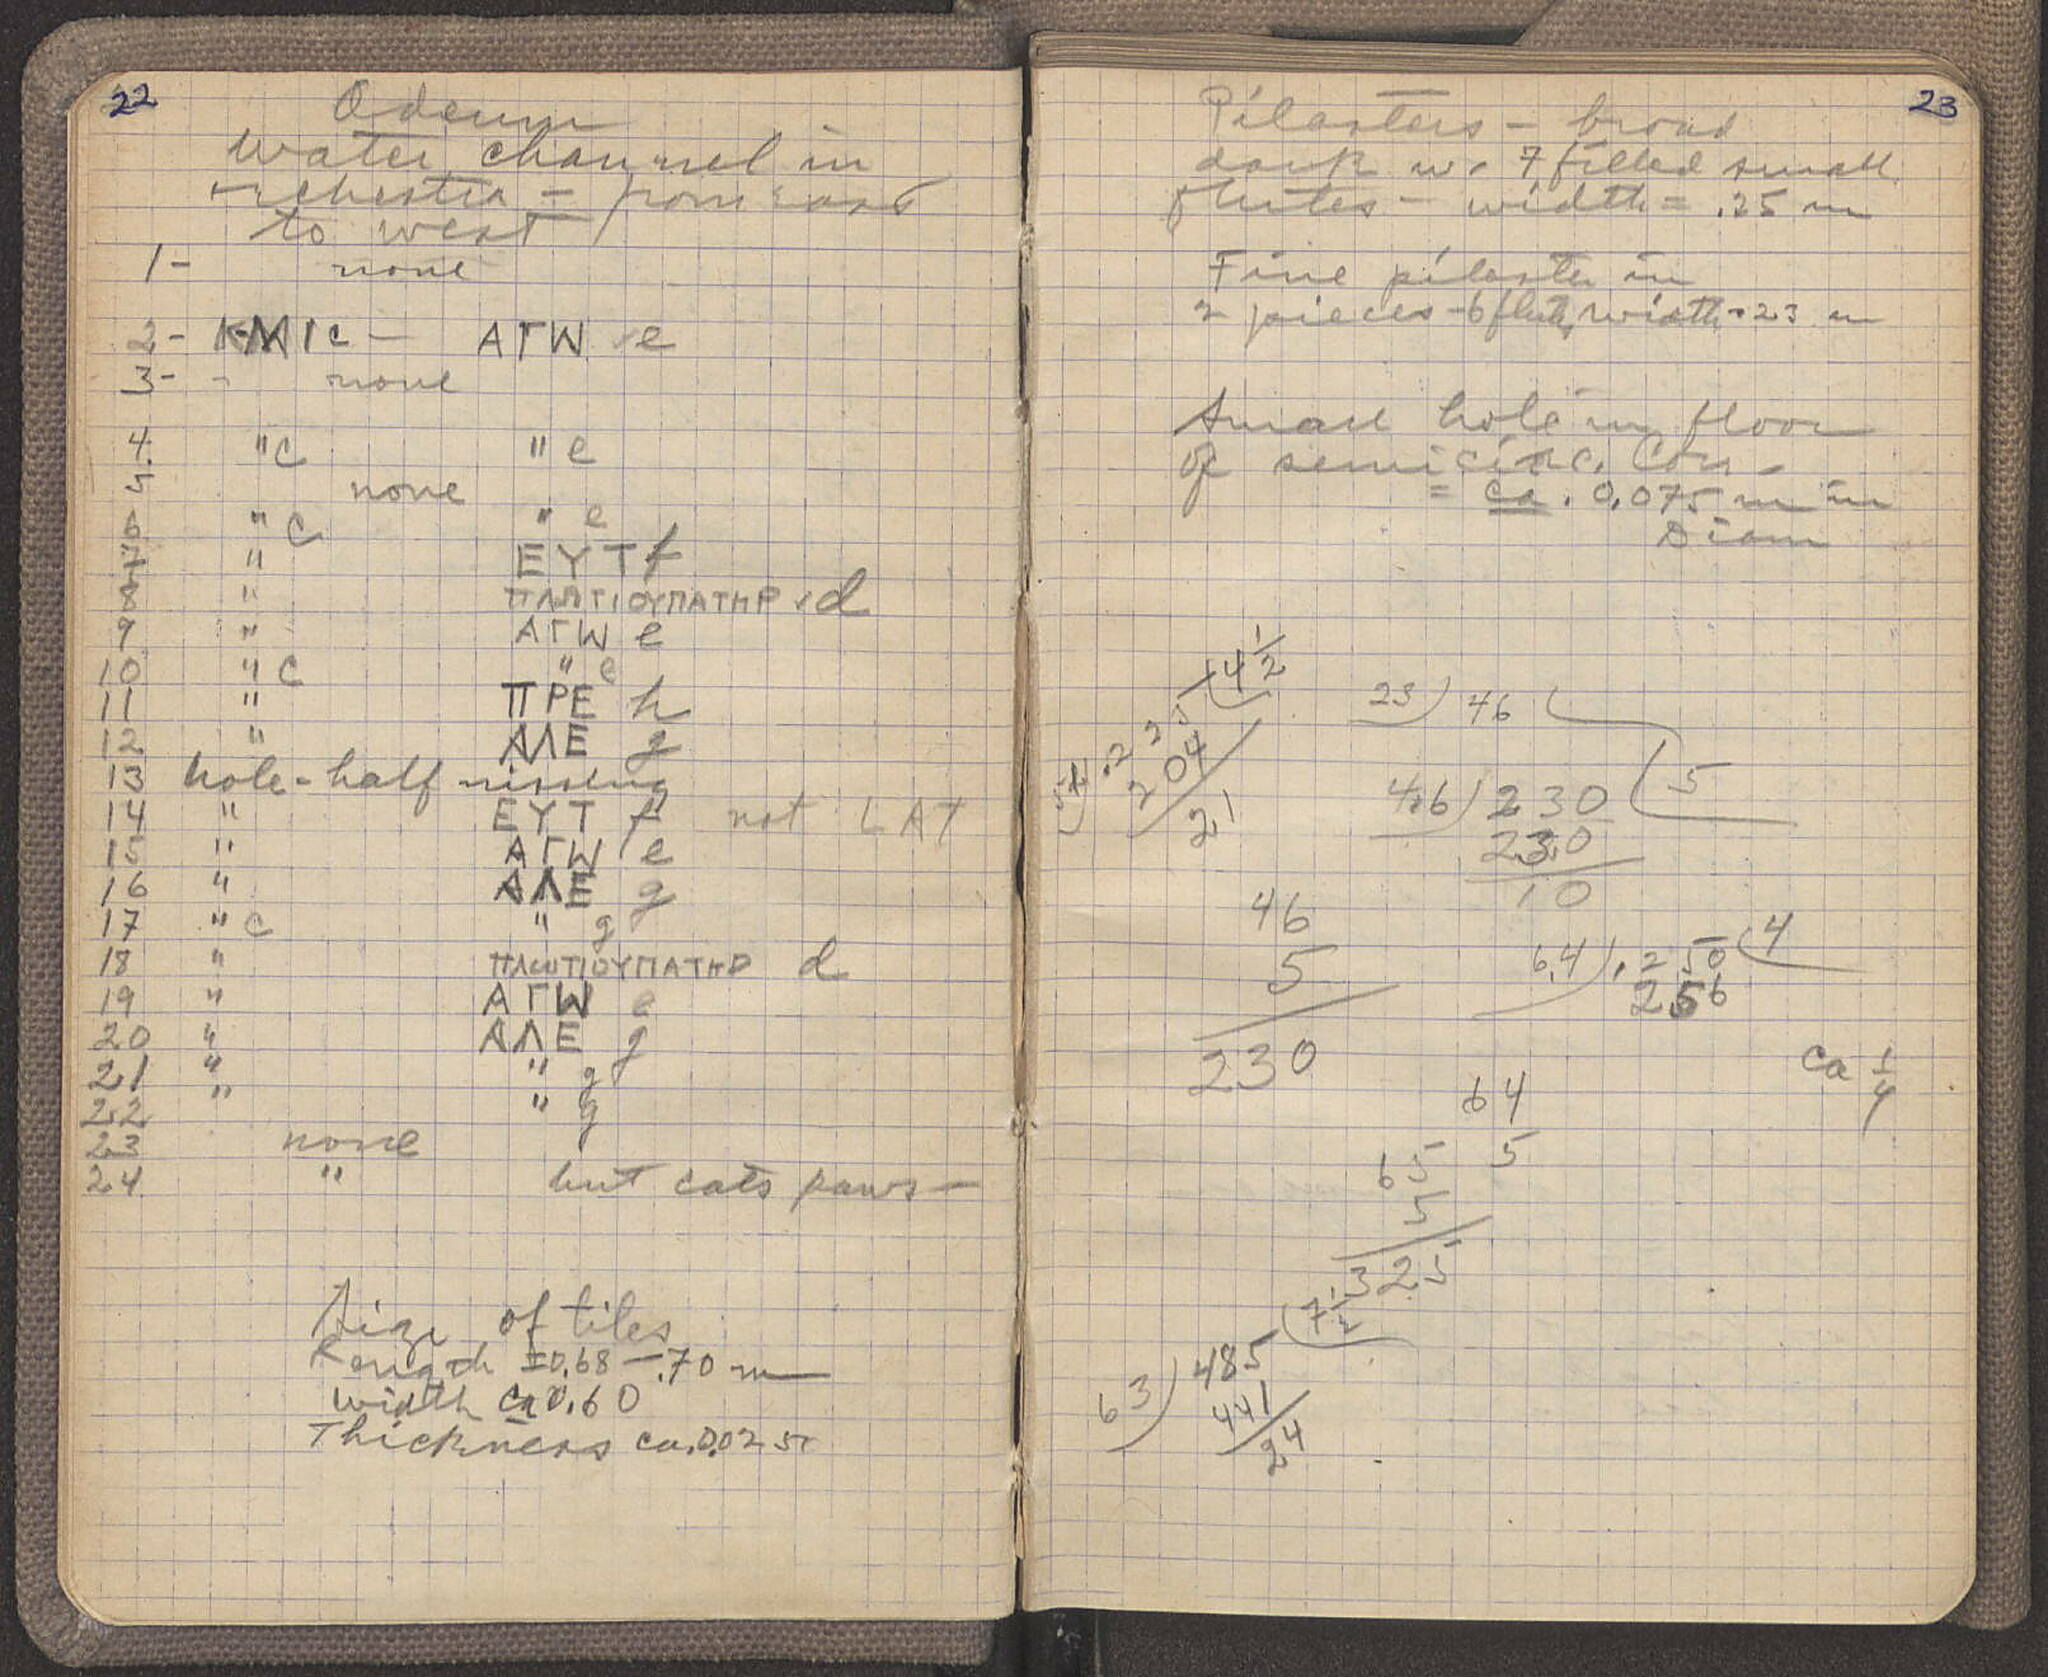 22
Odeum
water channel in
orchestra = from east
to west
1- none
2- KMIC - ΑΓW e
3- - none
4. "c "e
5 none
6 "c "e
7 " ΕΥΤ f
8 " ΠΛΩΤΙΟΥΠΑΤΗΡ d
9 " ΑΓW e
10 "c "e
11 " ΠΡΕ h
12 " ΑΛΕ g
13 hole-half missing
14 " ΕΥΤ f not LAT
15 " ΑΓW e
16 " ΑΛΕ g
17 "c " g
18 " ΠΛωΤΙΟΥΠΑΤΗΡ d
19 " ΑΓW e
20 " ΑΛΕ g
21 " " g
22 " " g
23 none
24 " but cats paws-
Size of tiles
Length = 0.68 - .70 m
width ca 0.60
Thickness ca. 0.025
23
Pilasters - broad
dark w. 7 filled small
flutes - width = .25 m
Fine pilaster in
2 pieces - 6 flutes width .23 m
Small hole in floor
of semicirc. Corr-
= ca. 0.075 m in
Diam
4 1/2
51 ) .225
204
21
23 ) 46
5
4.6 ) 230
230
10
46
5
230
6.4 ) .250 ( 4
256
ca 1/4
64
5
65
5
325
7 1/2
63 ) 485
441
24